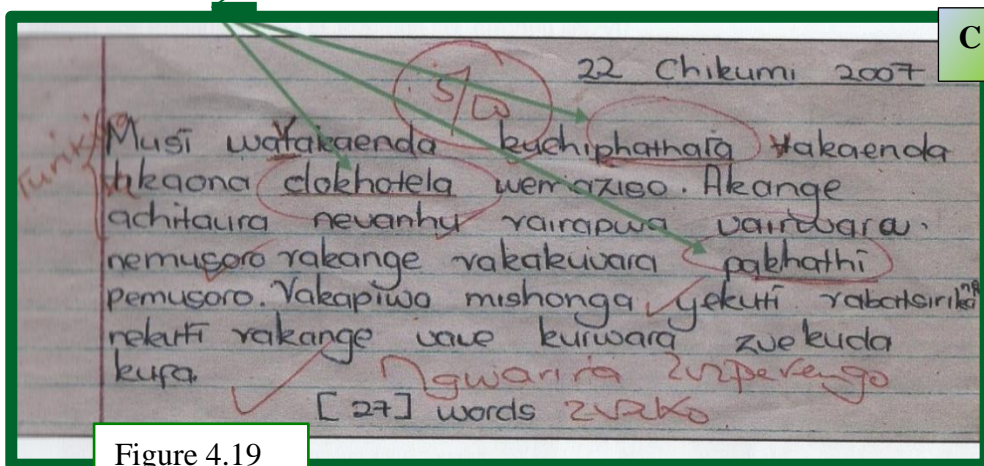 C
22 Chikumi 2007
5/20
Musi watakaenda kuchiphathara vakaenda
ukaona dokhotela wemaziso. Akange
achitaura nevanhu vairapwa vairwara.
nemusoro vakange vakakuvara pakhathi
pemusoro. Vakapiwa mishonga yekuti vabatsirike
nekuti vakange vave kurwara zvekuda
kufa.
Ngwarira zvzperengo
[27] words zvzko
Figure 4.19